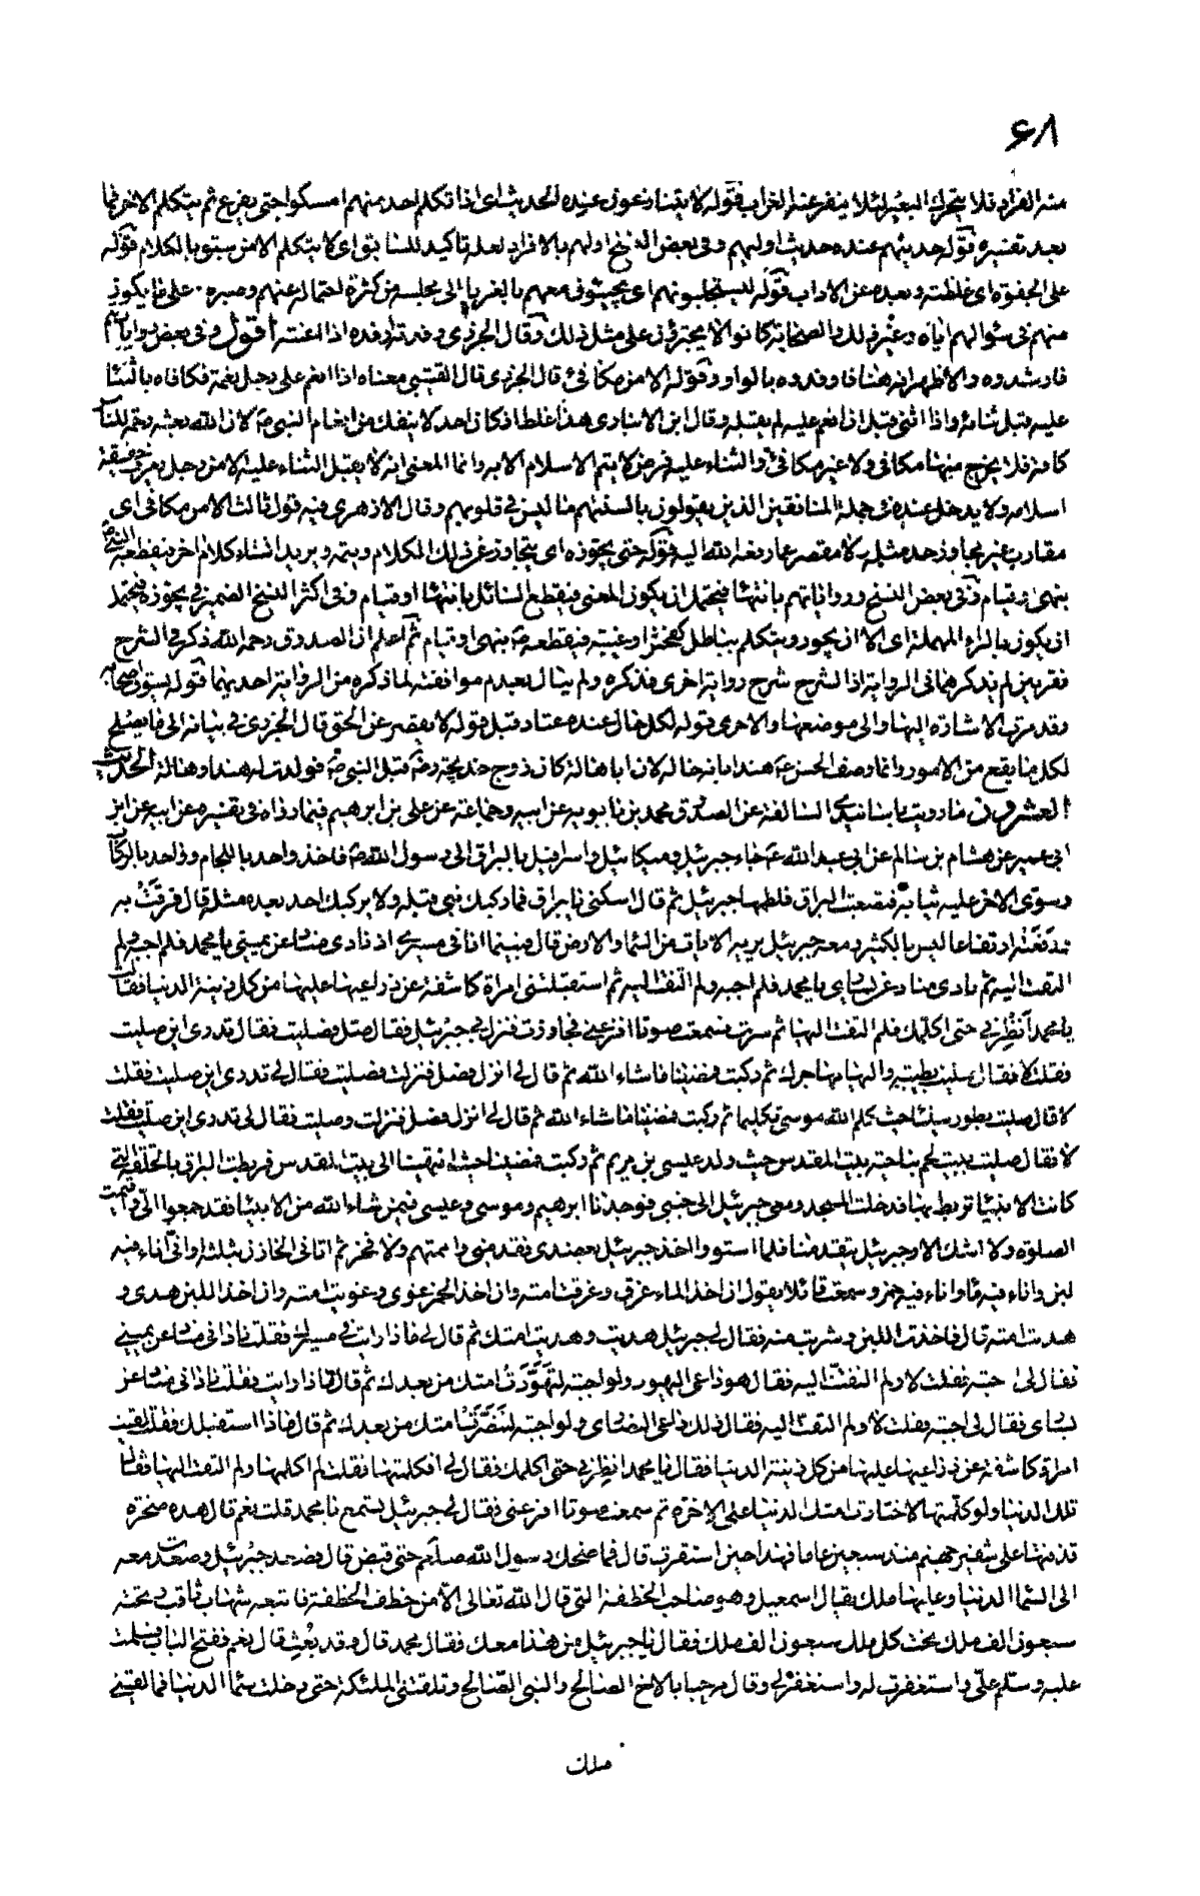 ۶۸
منه القراد فلا يتحرك البعير لئلا ينفر عنه الغراب قوله لا يتنازعون عنده الحديث اى اذا تكلم احد منهم امسكوا حتى يفرغ ثم يتكلم الاخر فما
بعد تفسيره قوله حديثهم عنده حديث اوليهم وفى بعض النسخ اولهم بالافراد لعله تاكيد للسابق اى لا يتكلم الا من سبق بالكلام قوله
على الجفوة اى غلظته وبعده عن الاداب قوله ليستجلبونهم اى يجيئون معهم بالغرباء الى مجلسه من كثرة احتماله عنهم وصبره على ما يكون
منهم فى سؤالهم اياه وغير ذلك والصحابة كانوا لا يجترؤن على مثل ذلك وقال الجزرى رفدته ارفده اذا اعنته اقول وفى بعض رواياتهم
فارشدوه والاظهر انه هنا فارفدوه بالواو وقوله الا من مكافئ قال الجزرى قال القتيبى معناه اذا انعم على رجل نعمة فكافاه بالثناء
عليه قبل ثنائه واذا اثنى قبل ان ينعم عليه لم يقبله وقال ابن الانبارى هذا غلط اذ كان احد لا ينفك من انعام النبى ص لان الله بعثه رحمة للناس
كافة فلا يخرج منها مكافئ ولا غير مكافئ والثناء عليه فرض لا يتم الاسلام الا به وانما المعنى انه لا يقبل الثناء عليه الا من رجل يعرف حقيقة
اسلامه ولا يدخل عنده فى جملة المنافقين الذين يقولون بالسنتهم ما ليس فى قلوبهم وقال الازهرى فيه قول ثالث الا من مكافئ اى
مقارب غير مجاوز حد مثله ولا مقصر عما رفعه الله اليه قوله حتى يجوزه اى يتجاوز عن ذلك الكلام ويتمه ويريد انشاء كلام اخر فيقطعه النبى ص
بنهى وقيام وفى بعض النسخ ورواياتهم بانتهاء فيحتمل ان يكون المعنى فيقطع السائل بانتهاء او قيام وفى اكثر النسخ الضمير فى يجوزه فيحتمل
ان يكون بالراء المهملة اى الا ان يجور ويتكلم بباطل كفحش او غيبة فيقطعه ص بنهى او قيام ثم اعلم ان الصدوق رحمه الله ذكر فى الشرح
فقرتين لم يذكرهما فى الرواية اذ الشرح شرح رواية اخرى فذكره ولم يبال بعدم موافقته لما ذكره من الرواية احديهما قوله يسوق اصحابه
وقد مرت الاشارة اليها والى موضعها والاخرى قوله لكل حال عنده عتاد قبل قوله لا يقصر عن الحق قال الجزرى فى بيانه الى ما يصلح
لكل ما يقع من الامور وانما وصف الحسن ع هندا بانه خاله لان ابا هالة كان زوج خديجة رض قبل النبى ص فولدت له هندا وهالة الحديث
العشرون ما رويت باسانيدى السالفة عن الصدوق محمد بن بابويه عن ابيه وجماعة عن على بن ابرهيم فيما رواه فى تفسيره عن ابيه عن ابن
ابى عمير عن هشام بن سالم عن ابى عبد الله ع جاء جبرئيل وميكائيل واسرافيل بالبراق الى رسول الله ص فاخذ واحد باللجام وواحد بالركاب
وسوى الاخر عليه ثيابه فتضعضعت البراق فلطمها جبرئيل ثم قال اسكنى يا براق فما ركبك نبى قبله ولا يركبك احد بعده مثله قال فرقت به
ورفعته ارتفاعا ليس بالكثير ومعه جبرئيل يريه الايات من السماء والارض قال فبينما انا فى مسيرى اذ نادى مناد عن يمينى يا محمد فلم اجبه ولم
التفت اليه ثم نادى مناد عن يسارى يا محمد فلم اجبه ولم التفت اليه ثم استقبلتنى امراة كاشفة عن ذراعيها عليها من كل زينة الدنيا فقالت
يا محمد انظرنى حتى اكلمك فلم التفت اليها ثم سرت فسمعت صوتا افزعنى فجاوزت فنزل بى جبرئيل فقال صل فصليت فقال تدرى اين صليت
فقلت لا فقال صليت بطيبة واليها مهاجرك ثم ركبت فمضينا ما شاء الله ثم قال لى انزل فصل فنزلت فصليت فقال لى تدرى اين صليت فقلت
لا قال صليت بطور سيناء حيث كلم الله موسى تكليما ثم ركبت فمضينا ما شاء الله ثم قال لى انزل فصل فنزلت وصليت فقال لى تدرى اين صليت فقلت
لا فقال صليت ببيت لحم بناحية بيت المقدس حيث ولد عيسى بن مريم ثم ركبت فمضينا حيث انتهينا الى بيت المقدس فربطت البراق بالحلقة التى
كانت الانبياء تربط بها فدخلت المسجد ومعى جبرئيل الى جنبى فوجدنا ابرهيم وموسى وعيسى فيمن شاء الله من الانبياء فقد جمعوا الى واقيمت
الصلوة ولا اشك الا وجبرئيل يتقدمنا فلما استووا اخذ جبرئيل بعضدى فقدمنى واممتهم ولا فخر ثم اتانى الخازن بثلثة اوانى اناء فيه
لبن واناء فيه ماء واناء فيه خمر وسمعت قائلا يقول ان اخذ الماء غرق وغرقت امته وان اخذ الخمر غوى وغويت امته وان اخذ اللبن هدى و
هديت امته قال فاخذت اللبن وشربت منه فقال لى جبرئيل هديت وهديت امتك ثم قال لى ماذا رايت فى مسيرك فقلت نادانى مناد عن يمينى
فقال لى اجبته فقلت لا ولم التفت اليه فقال هو داعى اليهود ولو اجبته لتهودت امتك من بعدك ثم قال ماذا رايت فقلت نادانى مناد عن
يسارى فقال لى اجبته فقلت لا ولم التفت اليه فقال ذلك داعى النصارى ولو اجبته لتنصرت امتك من بعدك ثم قال ماذا استقبلك فقلت لقيت
امراة كاشفة عن ذراعيها عليها من كل زينة الدنيا فقال يا محمد انظرنى حتى اكلمك فقال لى افكلمتها فقلت لم اكلمها ولم التفت اليها فقال
تلك الدنيا ولو كلمتها لاختارت امتك الدنيا على الاخرة ثم سمعت صوتا افزعنى فقال لى جبرئيل تسمع يا محمد قلت نعم قال هذه صخرة
قذفتها على شفير جهنم منذ سبعين عاما فهذا حين استقرت قال فما ضحك رسول الله صلعم حتى قبض قال فصعد جبرئيل وصعدت معه
الى السماء الدنيا وعليها ملك يقال اسمعيل وهو صاحب الخطفة التى قال الله تعالى الا من خطف الخطفة فاتبعه شهاب ثاقب وتحته
سبعون الف ملك تحت كل ملك سبعون الف ملك فقال يا جبرئيل من هذا معك فقال محمد قال وقد بعث قال نعم ففتح الباب فسلمت
عليه وسلم على واستغفرت له واستغفر لى وقال مرحبا بالاخ الصالح والنبى الصالح وتلقتنى الملئكة حتى دخلت سماء الدنيا فما لقينى
ملك